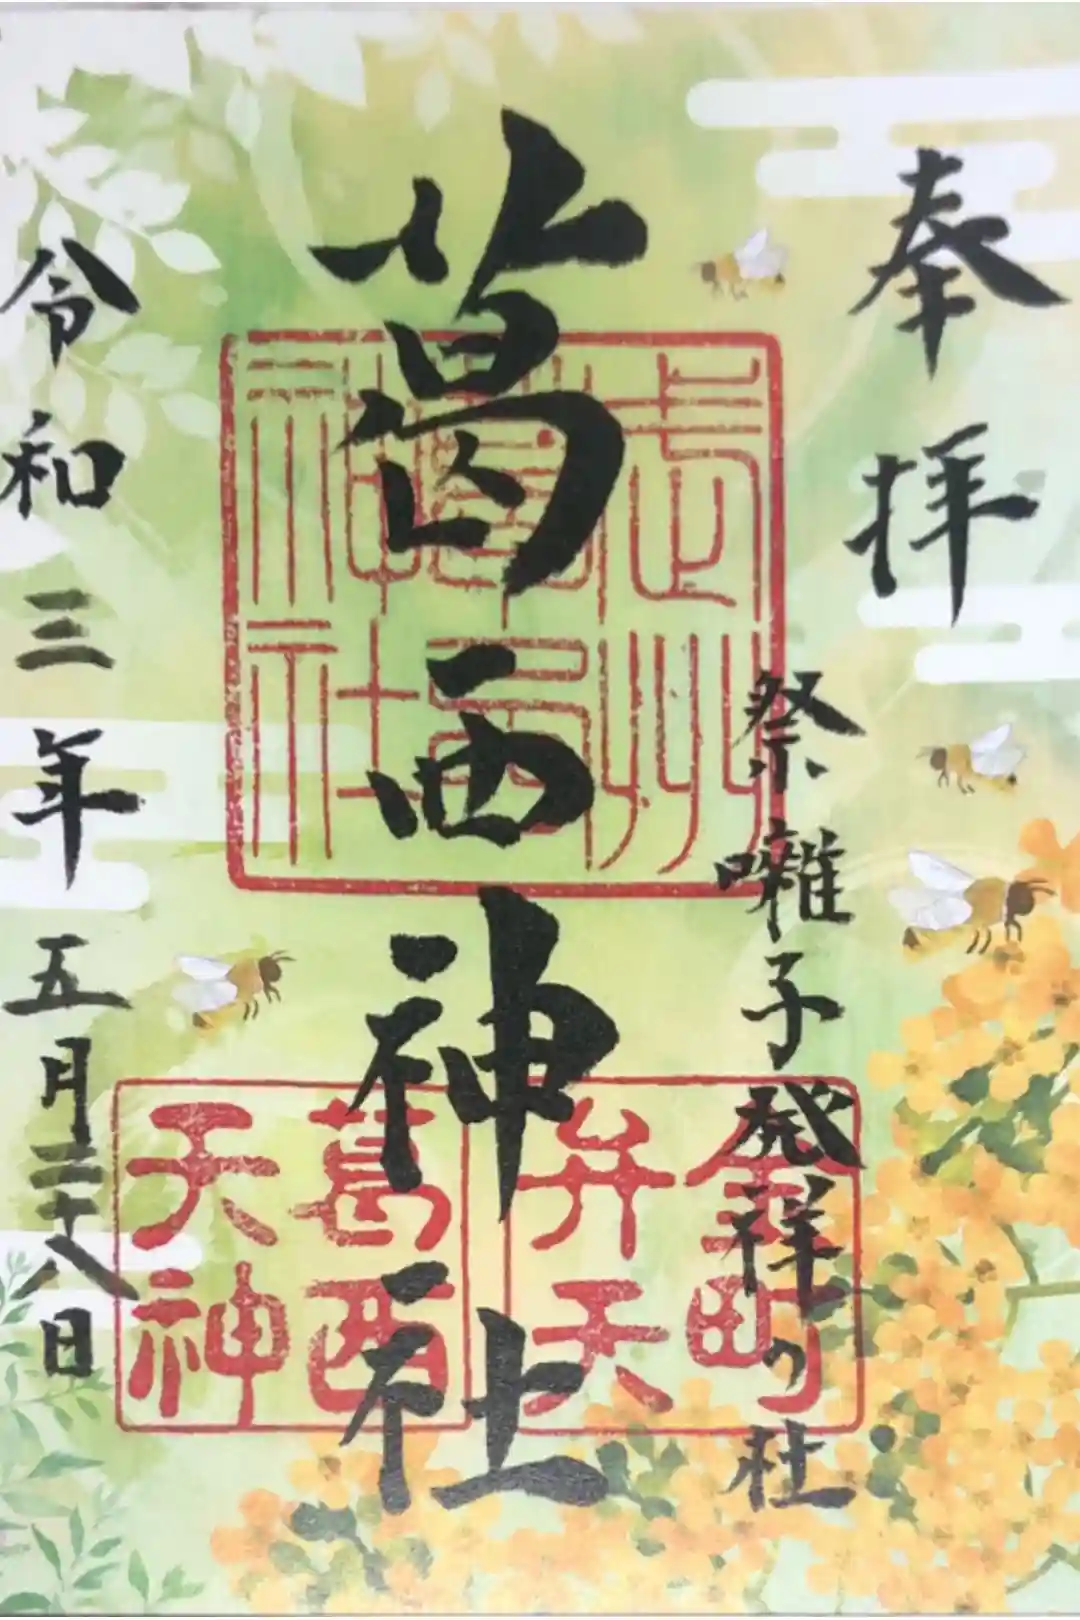 奉拝
祭囃子発祥の社
葛西神社
令和三年五月二十八日
武州
葛西
神社
金町
弁天
葛西
天神